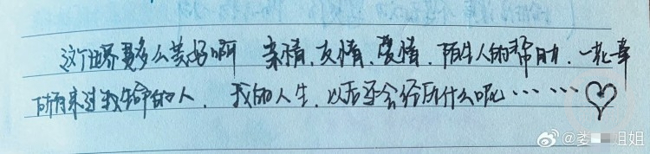 这个世界是多么美好啊 亲情、友情、爱情、陌生人的帮助,一花幸
所有来过我生命的人、我的人生,以后还会经历什么呢……
@娄 姐姐